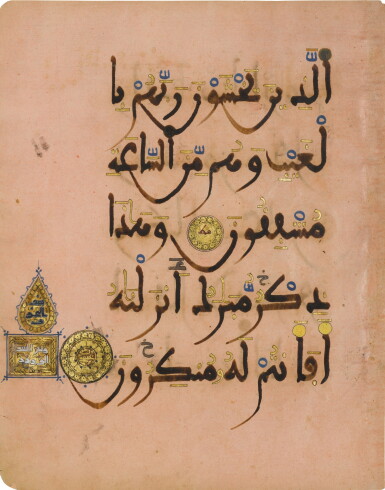 الَّذين يخشون ربَّهم با
لغيب وهم مِّن السَّاعة
مشفقون وهذا
ذكر مبرك أنزلنه
أفأنتم له منكرون